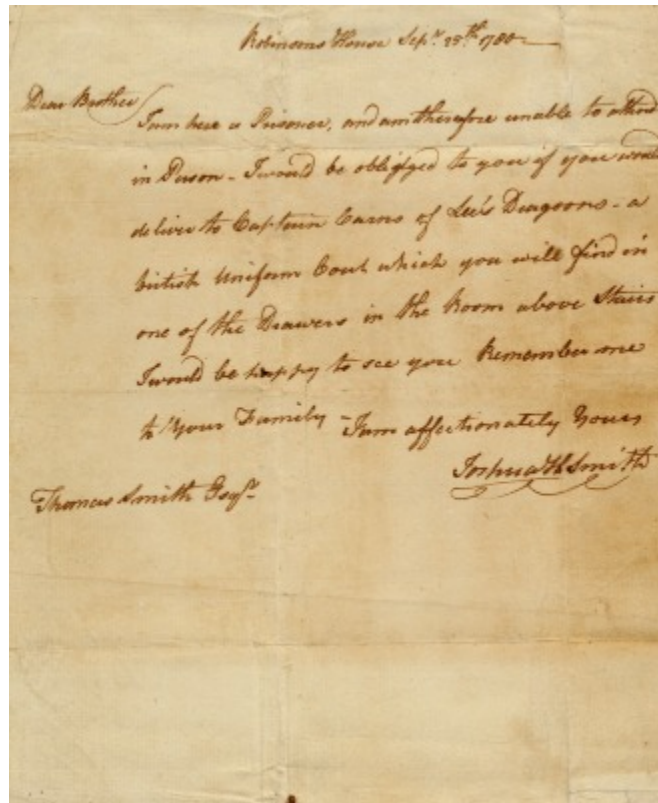 Robinsons House Sepr. 25th. 1780
Dear Brother
I am here a Prisoner, and am therefore unable to attend
in Person - I would be obliged to you if you would
deliver to Captain Cairns of Lee's Dragoons - a
british Uniform Coat which you will find in
one of the Drawers in the Room above Stairs
I would be happy to see you Remember me
to Your Family - I am affectionately Yours
Joshua H Smith
Thomas Smith Esqr.